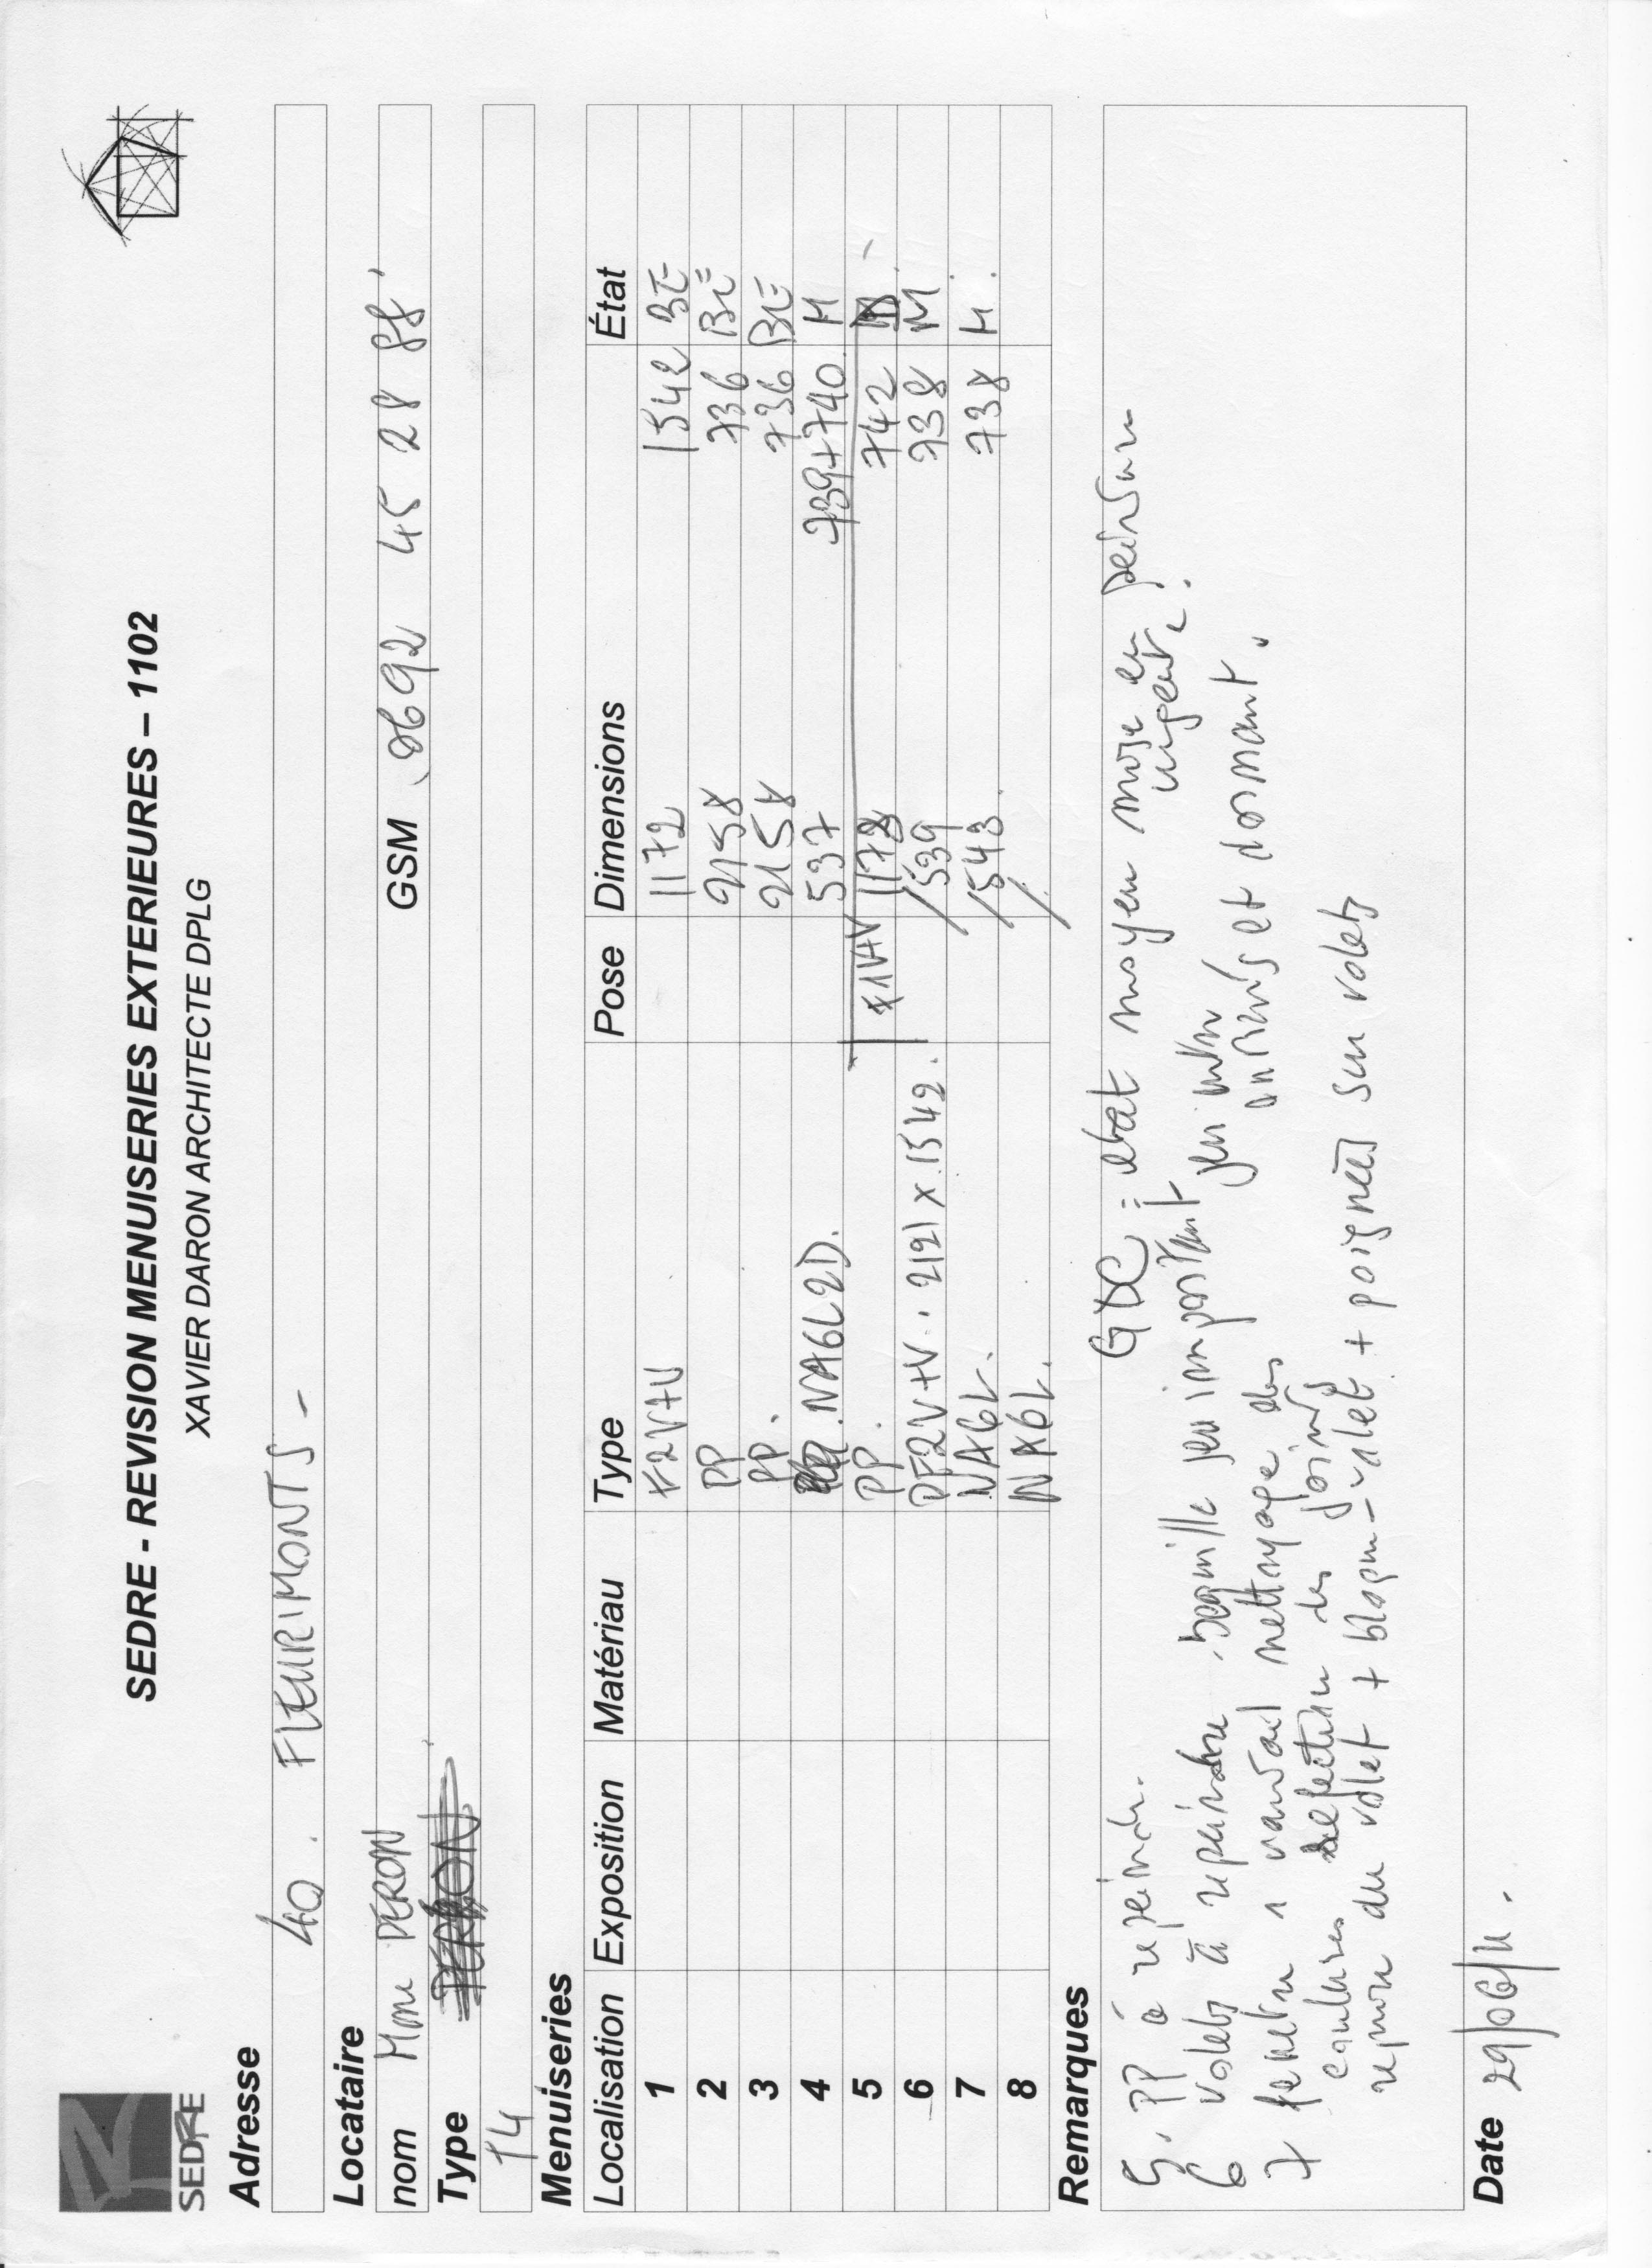 SEDRE
SEDRE - REVISION MENUISERIES EXTERIEURES – 1102
XAVIER DARON ARCHITECTE DPLG
Adresse
40. FLEURIMONTS -
Locataire
nom Mme PERON GSM 0692 45 28 88
Type
T4
Menuiseries
Localisation Exposition Matériau Type Pose Dimensions État
1 F2V+V 1172 1542 BE
2 PP 2158 736 BE
3 PP. 2158 736 BE
4 NA6L2D. 537 739+740. M
5 PP. 742
6 PF2V+V. 2121 x 1542. 539 938 M.
7 NA6L. 543 738 M.
8 NA6L.
Remarques
GDC = etat moyen mise en peinture urgente.
5. PP à repeindre.
6 volets à repeindre. bequille jeu important jeu entre
7 fenetre 1 vantail nettoyage des ouvrants et dormant.
réfection des joints
reprise du volet + bloque-volet + poignées sur volets
Date 29/06/11.